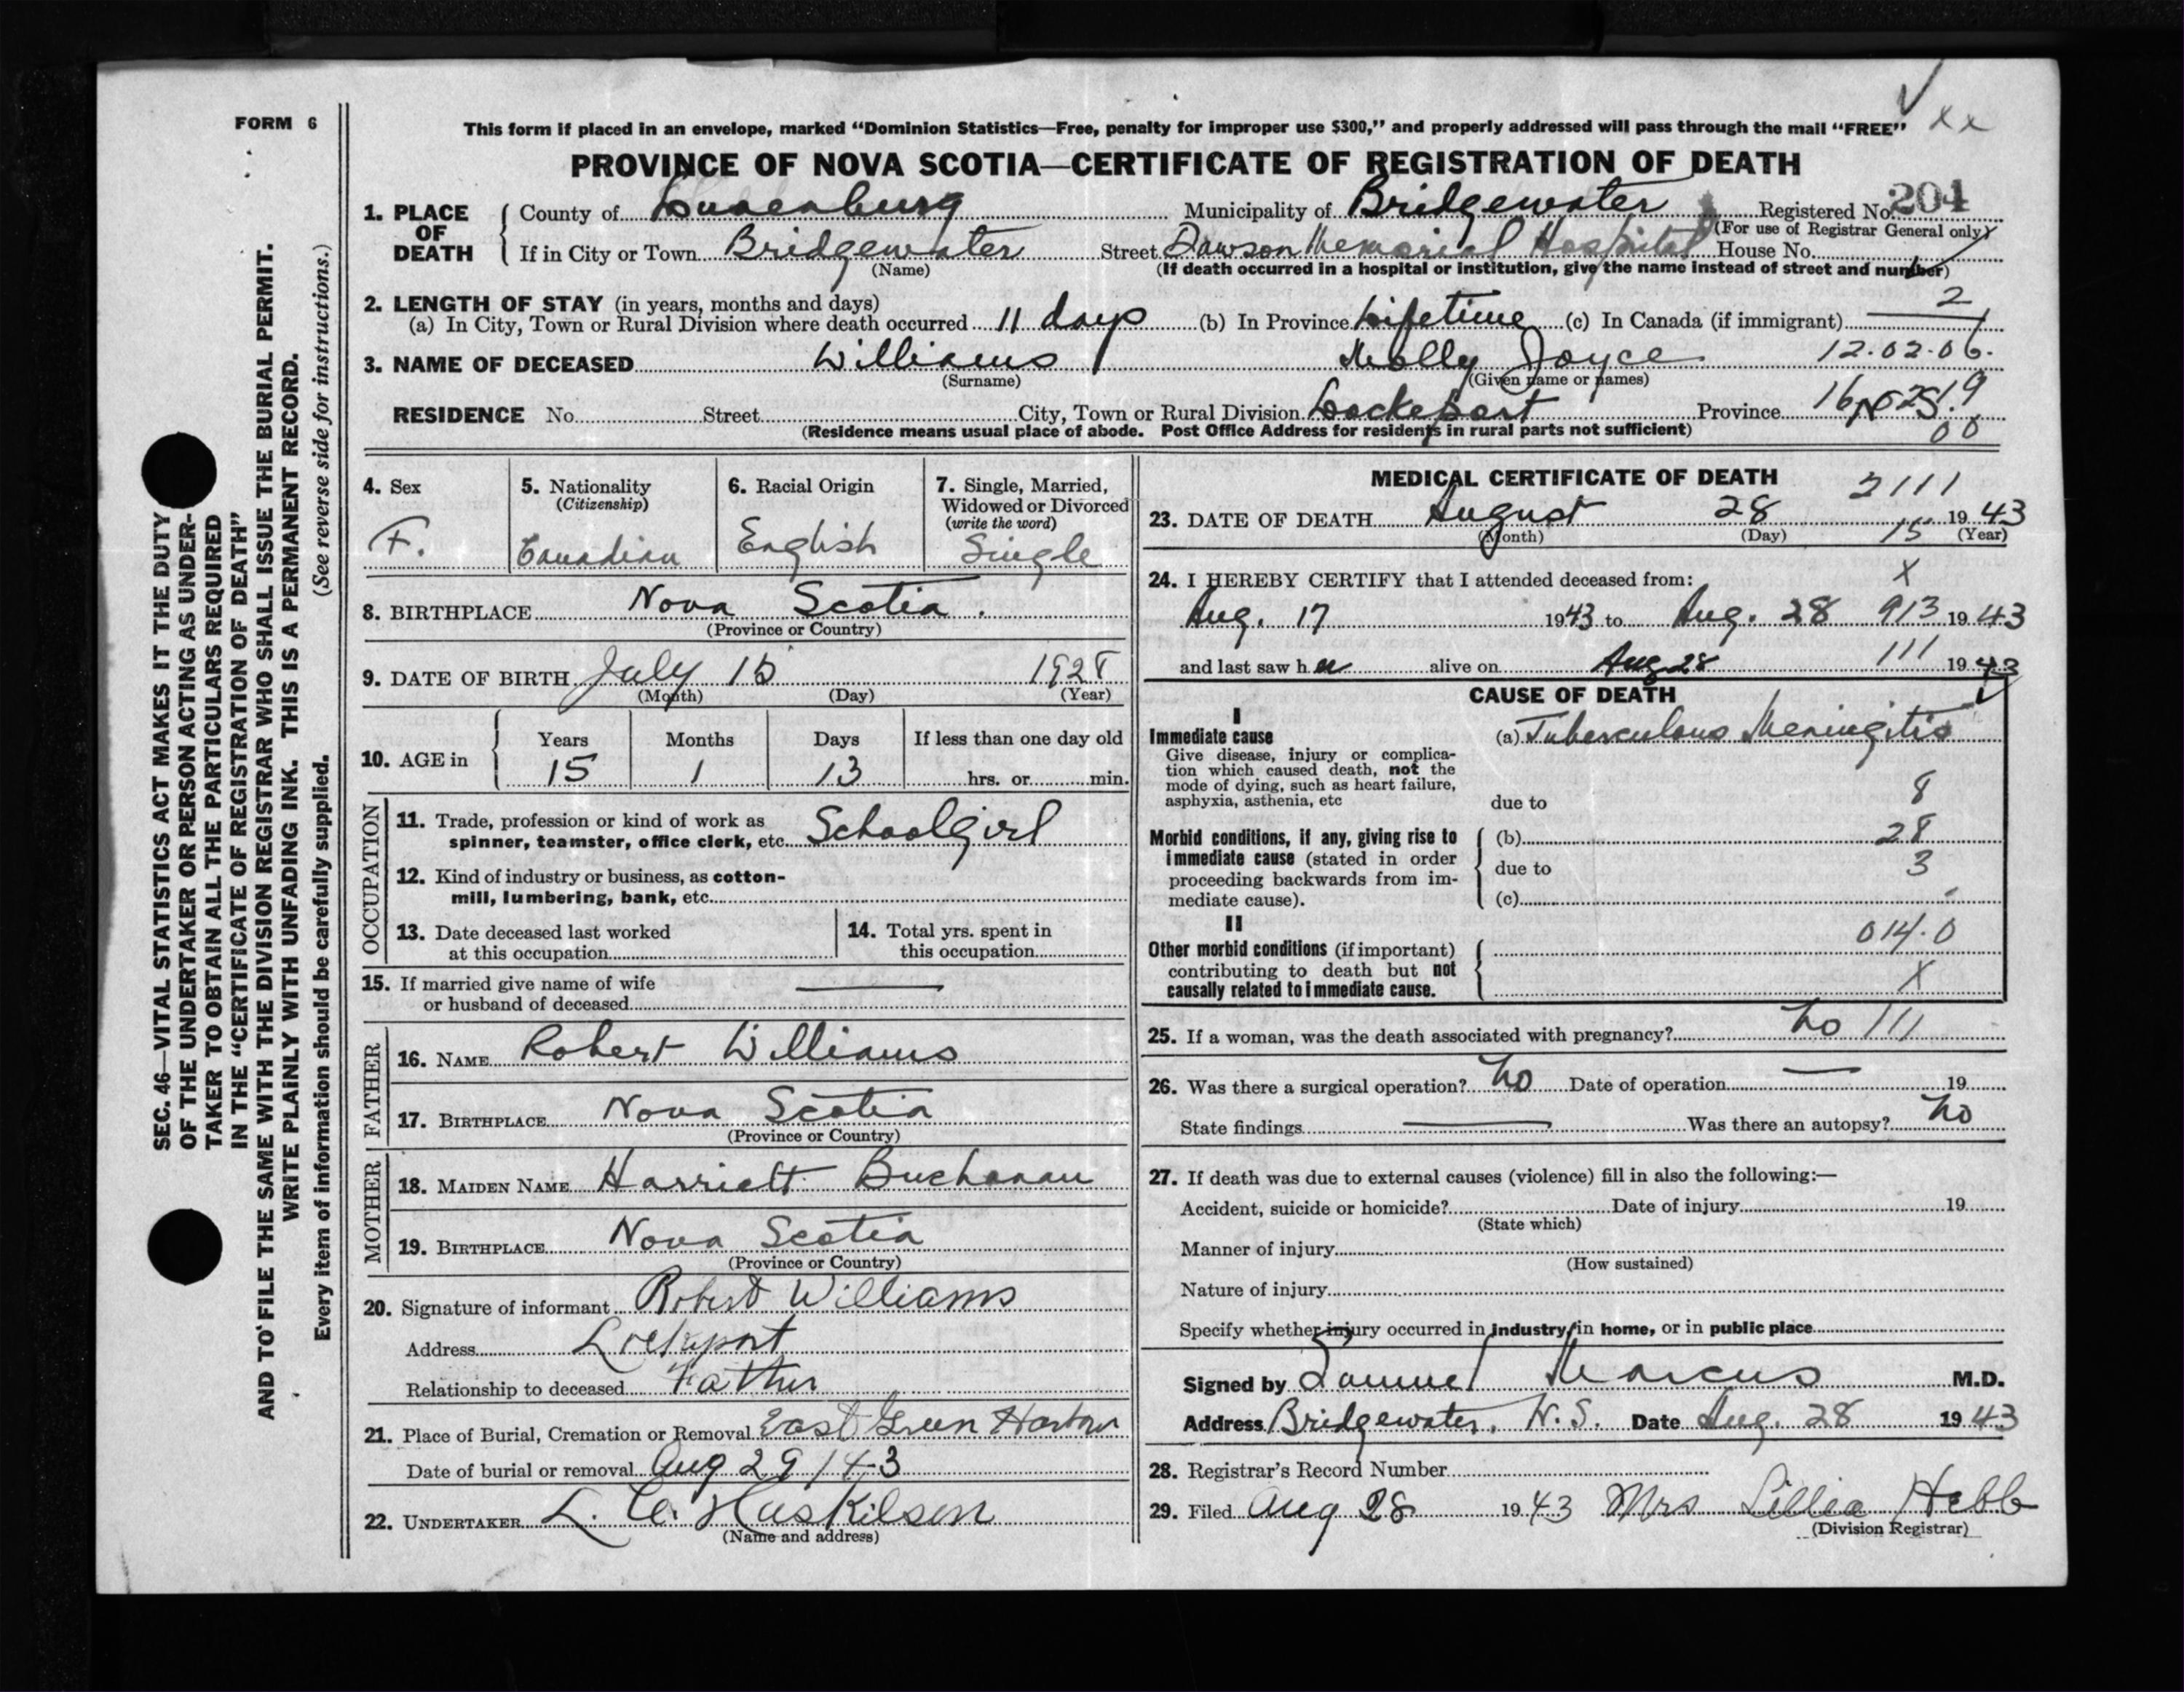 FORM 6
This form if placed in an envelope, marked “Dominion Statistics—Free, penalty for improper use $300,” and properly addressed will pass through the mail “FREE”
xx
PROVINCE OF NOVA SCOTIA—CERTIFICATE OF REGISTRATION OF DEATH
1. PLACE OF DEATH County of Lunenburg Municipality of Bridgewater Registered No. 204
(For use of Registrar General only)
If in City or Town Bridgewater Street Dawson Memorial Hospital House No.
(Name) (If death occurred in a hospital or institution, give the name instead of street and number)
2. LENGTH OF STAY (in years, months and days) 2
(a) In City, Town or Rural Division where death occurred 11 days (b) In Province Lifetime (c) In Canada (if immigrant)
3. NAME OF DECEASED Williams Molly Joyce 12.02.06.
(Surname) (Given name or names)
RESIDENCE No. Street City, Town or Rural Division Lockeport Province N.S.
(Residence means usual place of abode. Post Office Address for residents in rural parts not sufficient) 00
4. Sex
F.
5. Nationality
(Citizenship)
Canadian
6. Racial Origin
English
7. Single, Married,
Widowed or Divorced
(write the word)
Single
8. BIRTHPLACE Nova Scotia.
(Province or Country)
9. DATE OF BIRTH July 15 1928
(Month) (Day) (Year)
10. AGE in Years Months Days If less than one day old
15 1 13 hrs. or min.
OCCUPATION
11. Trade, profession or kind of work as
spinner, teamster, office clerk, etc. Schoolgirl
12. Kind of industry or business, as cotton-
mill, lumbering, bank, etc.
13. Date deceased last worked
at this occupation
14. Total yrs. spent in
this occupation
15. If married give name of wife
or husband of deceased
FATHER
16. NAME Robert Williams
17. BIRTHPLACE Nova Scotia
(Province or Country)
MOTHER
18. MAIDEN NAME Harriett Buchanan
19. BIRTHPLACE Nova Scotia
(Province or Country)
20. Signature of informant Robert Williams
Address Lockeport
Relationship to deceased Father
21. Place of Burial, Cremation or Removal East Green Harbor
Date of burial or removal Aug 29/43
22. UNDERTAKER L. C. Huskilson
(Name and address)
MEDICAL CERTIFICATE OF DEATH
2111
23. DATE OF DEATH August 28 1943
(Month) (Day) 15 (Year)
24. I HEREBY CERTIFY that I attended deceased from: X
Aug. 17 1943 to Aug. 28 913 1943
and last saw her alive on Aug 28 111 1943
CAUSE OF DEATH
I
Immediate cause
Give disease, injury or complica-
tion which caused death, not the
mode of dying, such as heart failure,
asphyxia, asthenia, etc
(a) Tuberculous Meningitis
8
due to
Morbid conditions, if any, giving rise to
immediate cause (stated in order
proceeding backwards from im-
mediate cause).
(b) 28
due to 3
(c)
II
Other morbid conditions (if important)
contributing to death but not
causally related to immediate cause.
014.0
X
25. If a woman, was the death associated with pregnancy? no 111
26. Was there a surgical operation? no Date of operation 19
State findings Was there an autopsy? no
27. If death was due to external causes (violence) fill in also the following:—
Accident, suicide or homicide? Date of injury 19
(State which)
Manner of injury
(How sustained)
Nature of injury
Specify whether injury occurred in industry, in home, or in public place
Signed by Samuel Marcus M.D.
Address Bridgewater, N.S. Date Aug. 28 1943
28. Registrar's Record Number
29. Filed Aug 28 1943 Mrs Lillia Hebb
(Division Registrar)
SEC. 46—VITAL STATISTICS ACT MAKES IT THE DUTY
OF THE UNDERTAKER OR PERSON ACTING AS UNDER-
TAKER TO OBTAIN ALL THE PARTICULARS REQUIRED
IN THE “CERTIFICATE OF REGISTRATION OF DEATH”
AND TO FILE THE SAME WITH THE DIVISION REGISTRAR WHO SHALL ISSUE THE BURIAL PERMIT.
WRITE PLAINLY WITH UNFADING INK. THIS IS A PERMANENT RECORD.
Every item of information should be carefully supplied. (See reverse side for instructions.)